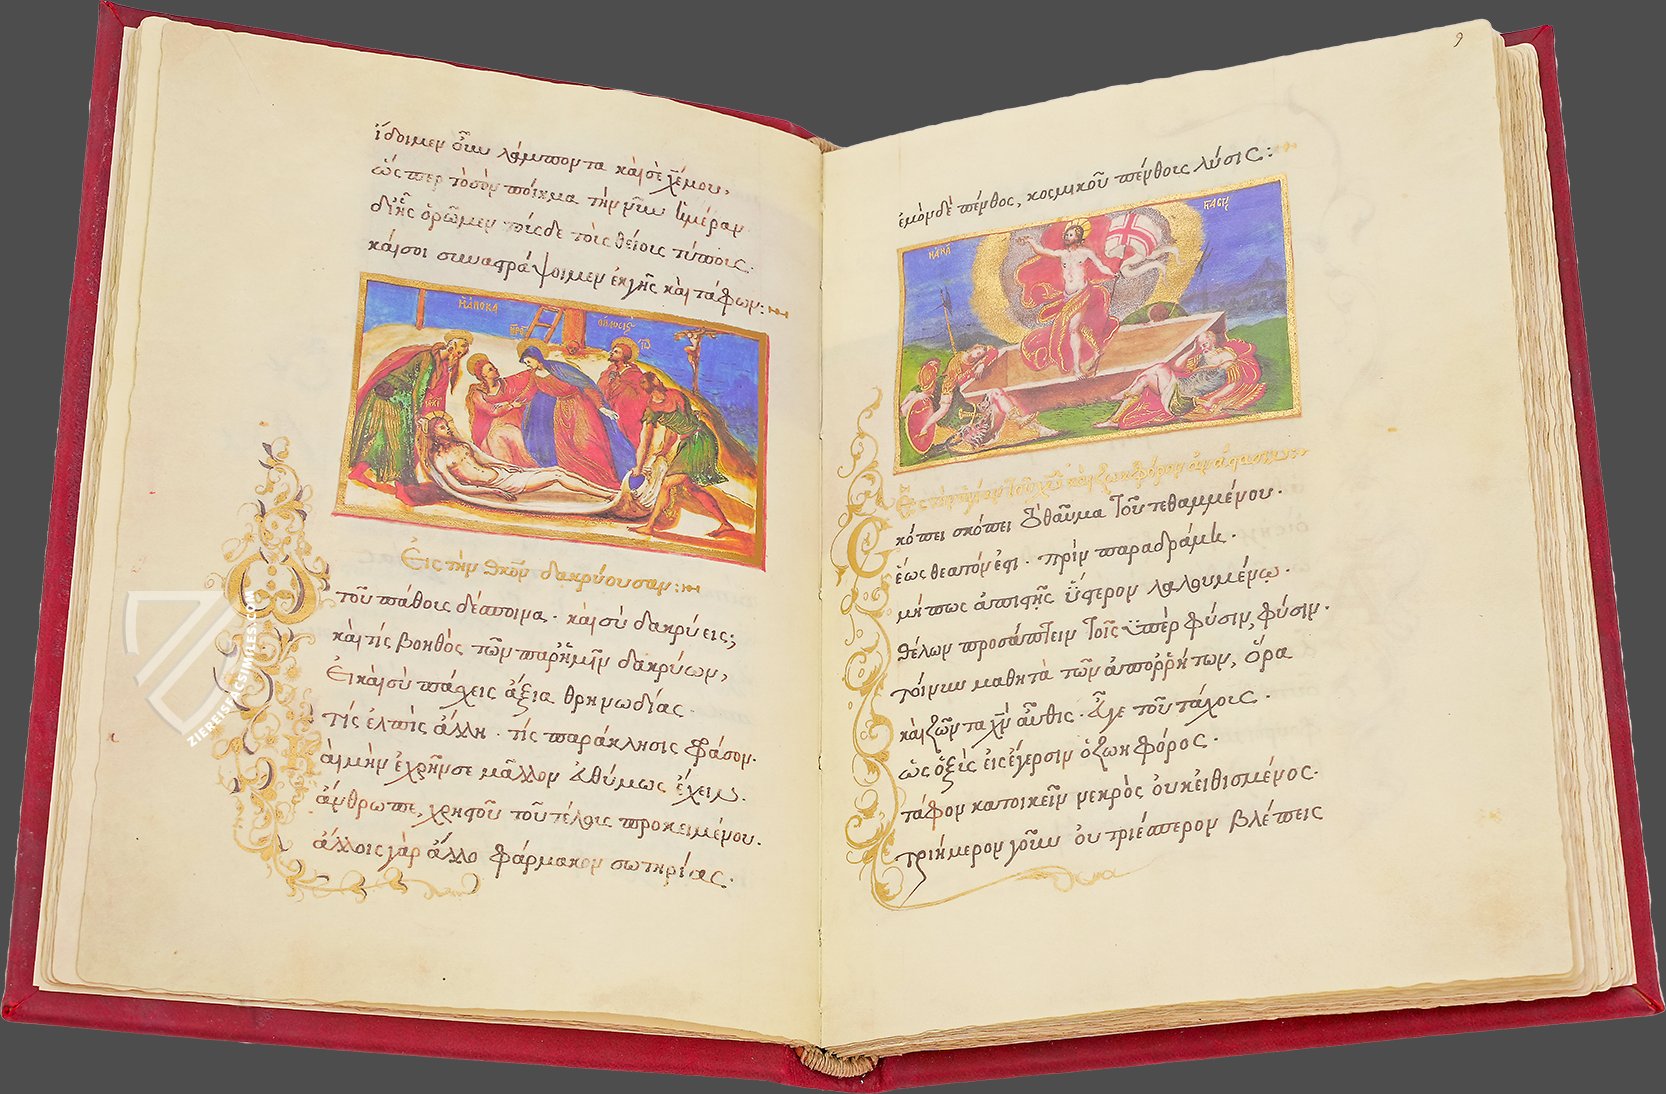 ἴδοιμεν οὖν λάμποντα καὶ σὲ χἠμου,
ὥσπερ τοσὸν ποίκμα τὴν νῦν ἡμέραν
δι' ἧς ὁρῶμεν τοῖσδε τοῖς θείοις τύποις.
καὶ σοι συναστράψοιμεν ἐκ γῆς καὶ τάφων:
Η ΑΠΟΚΑ
Εἰς τὴν Θκον δακρύουσαν:
τοῦ πάθους δέσποινα. καὶ σὺ δακρύεις;
καὶ τίς βοηθὸς τῶν παρ' ἡμῖν δακρύων,
Εἰ καὶ σὺ πάσχεις ἄξια θρηνωδίας.
τίς ἐλπὶς ἄλλη. τίς παράκλησις φράσον.
αἲ μὴν ἐχρῆν σε μᾶλλον εὐθύμως ἔχειν.
ἄνθρωπε, χρηστοῦ τοῦ τέλους προκειμένου.
ἄλλοις γὰρ ἄλλο φάρμακον σωτηρίας.
ZIEREIS FACSIMILES.COM
9
ἐμὸν δὲ πένθος, κοσμικοῦ πένθους λύσις:
Εἰς τὴν ἁγίαν τοῦ Χυ καὶ ζωηφόρον ἀνάστασιν
Σκόπει σκόπει θαῦμα τοῦ τεθαμμένου.
ἕως θεατόν ἐστι. πρὶν παραδράμη.
μήπως ἀπιστῇς ὕστερον λαλουμένῳ.
θέλων προσάπτειν τοῖς ὑπὲρ φύσιν, φύσιν.
τοίνυν μαθητὰ τῶν ἀπορρήτων, ὅρα
καὶ ζῶντα Χν αὖθις. ἄγε τοῦ τάχους.
ὡς ὀξὺς εἰς ἔγερσιν ὁ ζωηφόρος.
τάφον κατοικεῖν νεκρὸς οὐκ εἰθισμένος.
τριήμερον γοῦν οὐ τριέσπερον βλέπεις